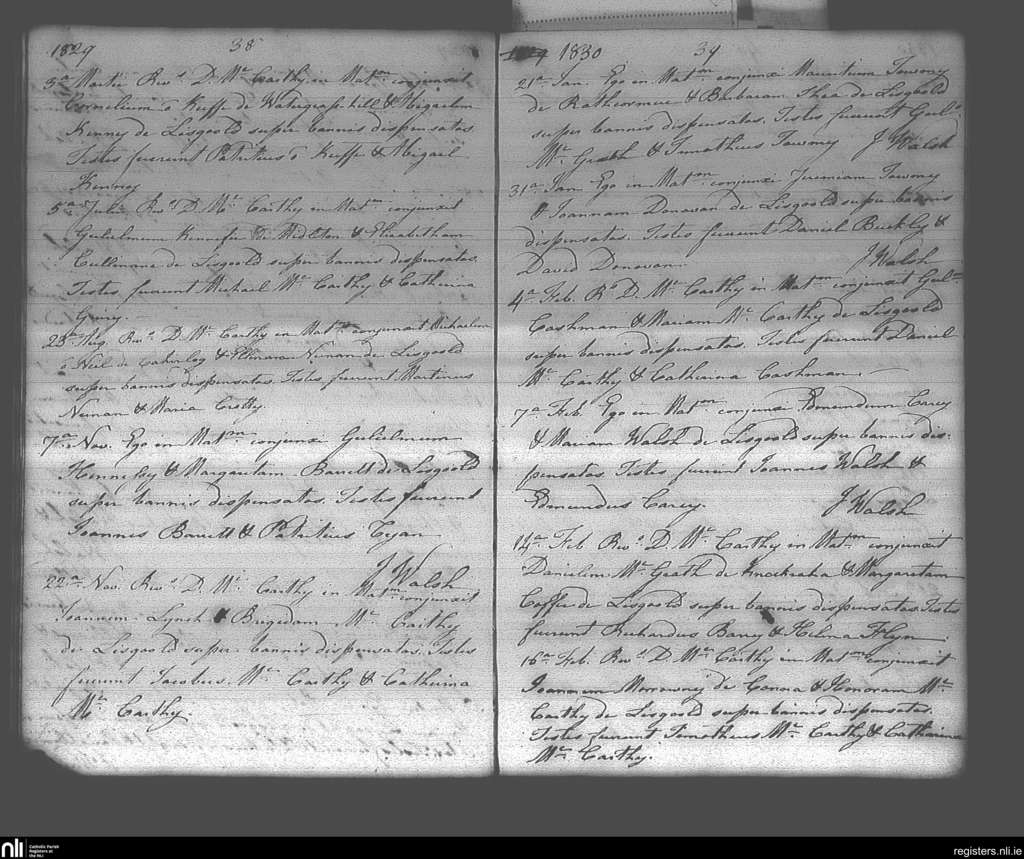 1829 38
3a Martii Revs D. Mc Carthy in Matm conjunxit
Cornelium o Keeffe de Watergrasshill & Abigaelm
Kenney de Lisgoold super bannis dispensatos.
Testes fuerunt Patritius o Keeffe & Abigael
Kenney
5a Julii Revs D. Mc Carthy in Matm conjunxit
Gulielmum de Midleton & Elizabetham
Cullenane de Lisgoold super bannis dispensatos.
Testes fuerunt Michael Mc Carthy & Catherina
23a Aug. Revs D. Mc Carthy in Matm conjunxit Michaelem
o Neil de & Nunan de Lisgoold
super bannis dispensatos. Testes fuerunt Martinus
Nunan & Maria Crotty.
7a Nov. Ego in Matm conjunxi Gulielmum
Hennessy & Margaritam Barrett de Lisgoold
super bannis dispensatos. Testes fuerunt
Joannes Barrett & Patritius
J Walsh
22a Nov. Revs D. Mc Carthy in Matm conjunxit
Joannem Lynch & Brigidam Mc Carthy
de Lisgoold super bannis dispensatos. Testes
fuerunt Jacobus Mc Carthy & Catherina
Mc Carthy.
1830 39
21a Jan. Ego in Matm conjunxi Mauritium Towney
de Rathcormuc & Barbaram Shea de Lisgoold
super bannis dispensatos. Testes fuerunt Guls
Mc Grath & Timotheus Towney J Walsh
31a Jan Ego in Matm conjunxi Jeremiam Towney
& Joannam Donovan de Lisgoold super bannis
dispensatos. Testes fuerunt Daniel Buckley &
David Donovan. J Walsh
4a Feb. Rs D. Mc Carthy in Matm conjunxit Gulm
Cashman & Mariam Mc Carthy de Lisgoold
super bannis dispensatos. Testes fuerunt Daniel
Mc Carthy & Catharina Cashman.
7a Feb. Ego in Matm conjunxi Edmundum Carey
& Mariam Walsh de Lisgoold super bannis dis-
pensatos. Testes fuerunt Joannes Walsh &
Edmundus Carey. J Walsh
14a Feb Revs D. Mc Carthy in Matm conjunxit
Danielem Mc Grath de Knockraha & Margaretam
de Lisgoold super bannis dispensatos. Testes
fuerunt Richardus Barry & Helena Flyn
16a Feb. Revs D. Mc Carthy in Matm conjunxit
Joannem de & Honoram Mc
Carthy de Lisgoold super bannis dispensatos.
Testes fuerunt Timotheus Mc Carthy & Catharina
Mc Carthy.
nli
Catholic Parish
Registers at
the NLI
registers.nli.ie